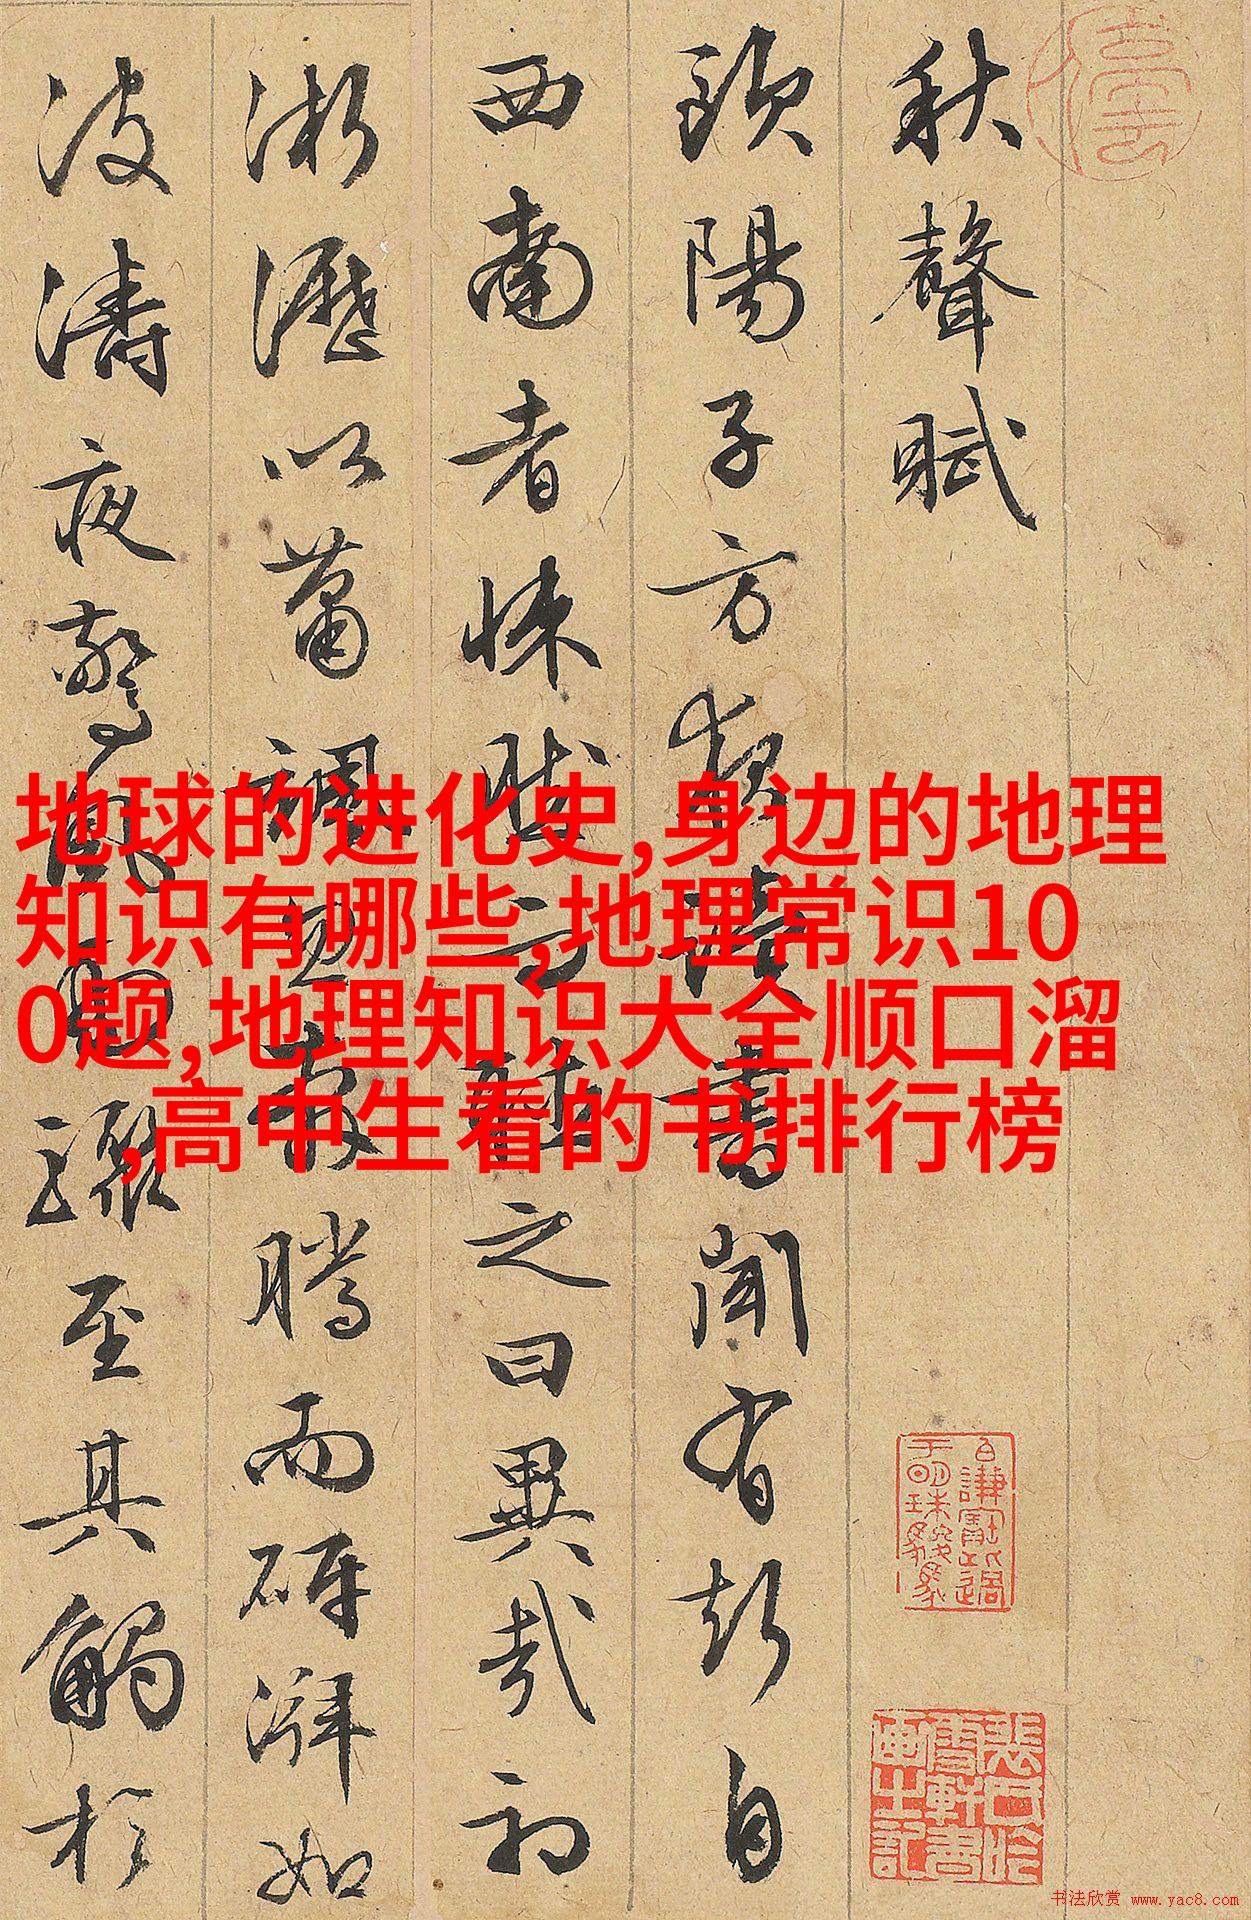 秋聲賦
歐陽子方夜讀書聞有聲自
西南者悚然而聽之曰異哉初
淅瀝以蕭颯忽奔騰而砰湃如
波濤夜驚風雨驟至其觸於
地球的进化史,身边的地理
知识有哪些,地理常识10
0题,地理知识大全顺口溜
,高中生看的书排行榜
书法欣赏 www.yac8.com